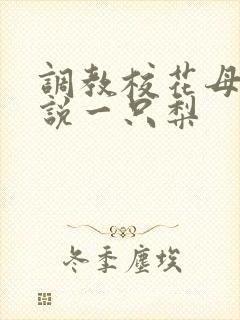 調教校花母
說一只梨
冬季塵埃